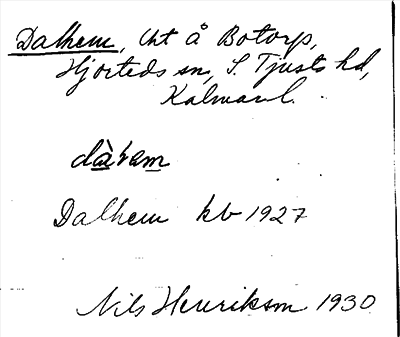 Dalhem, lht å Botorp,
Hjorteds sn, S. Tjusts hd,
Kalmarl.
Dalhem kb 1927
Nils Henrikson 1930